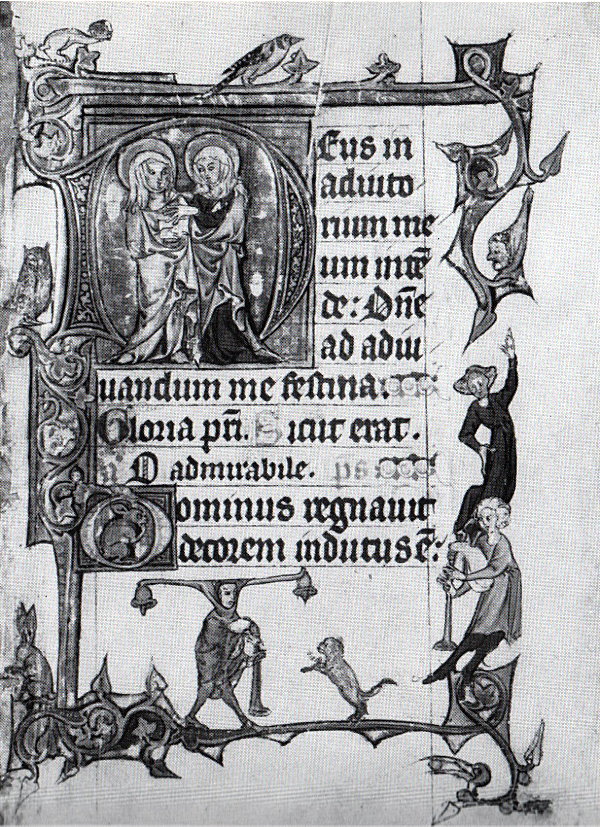 DEus in
adiuto
rium me
um intē
de: Dn̄e
ad adiu
uandum me festina.
Gloria pr̄i. Sicut erat.
a O admirabile. ps:
Dominus regnauit
decorem indutus ē: